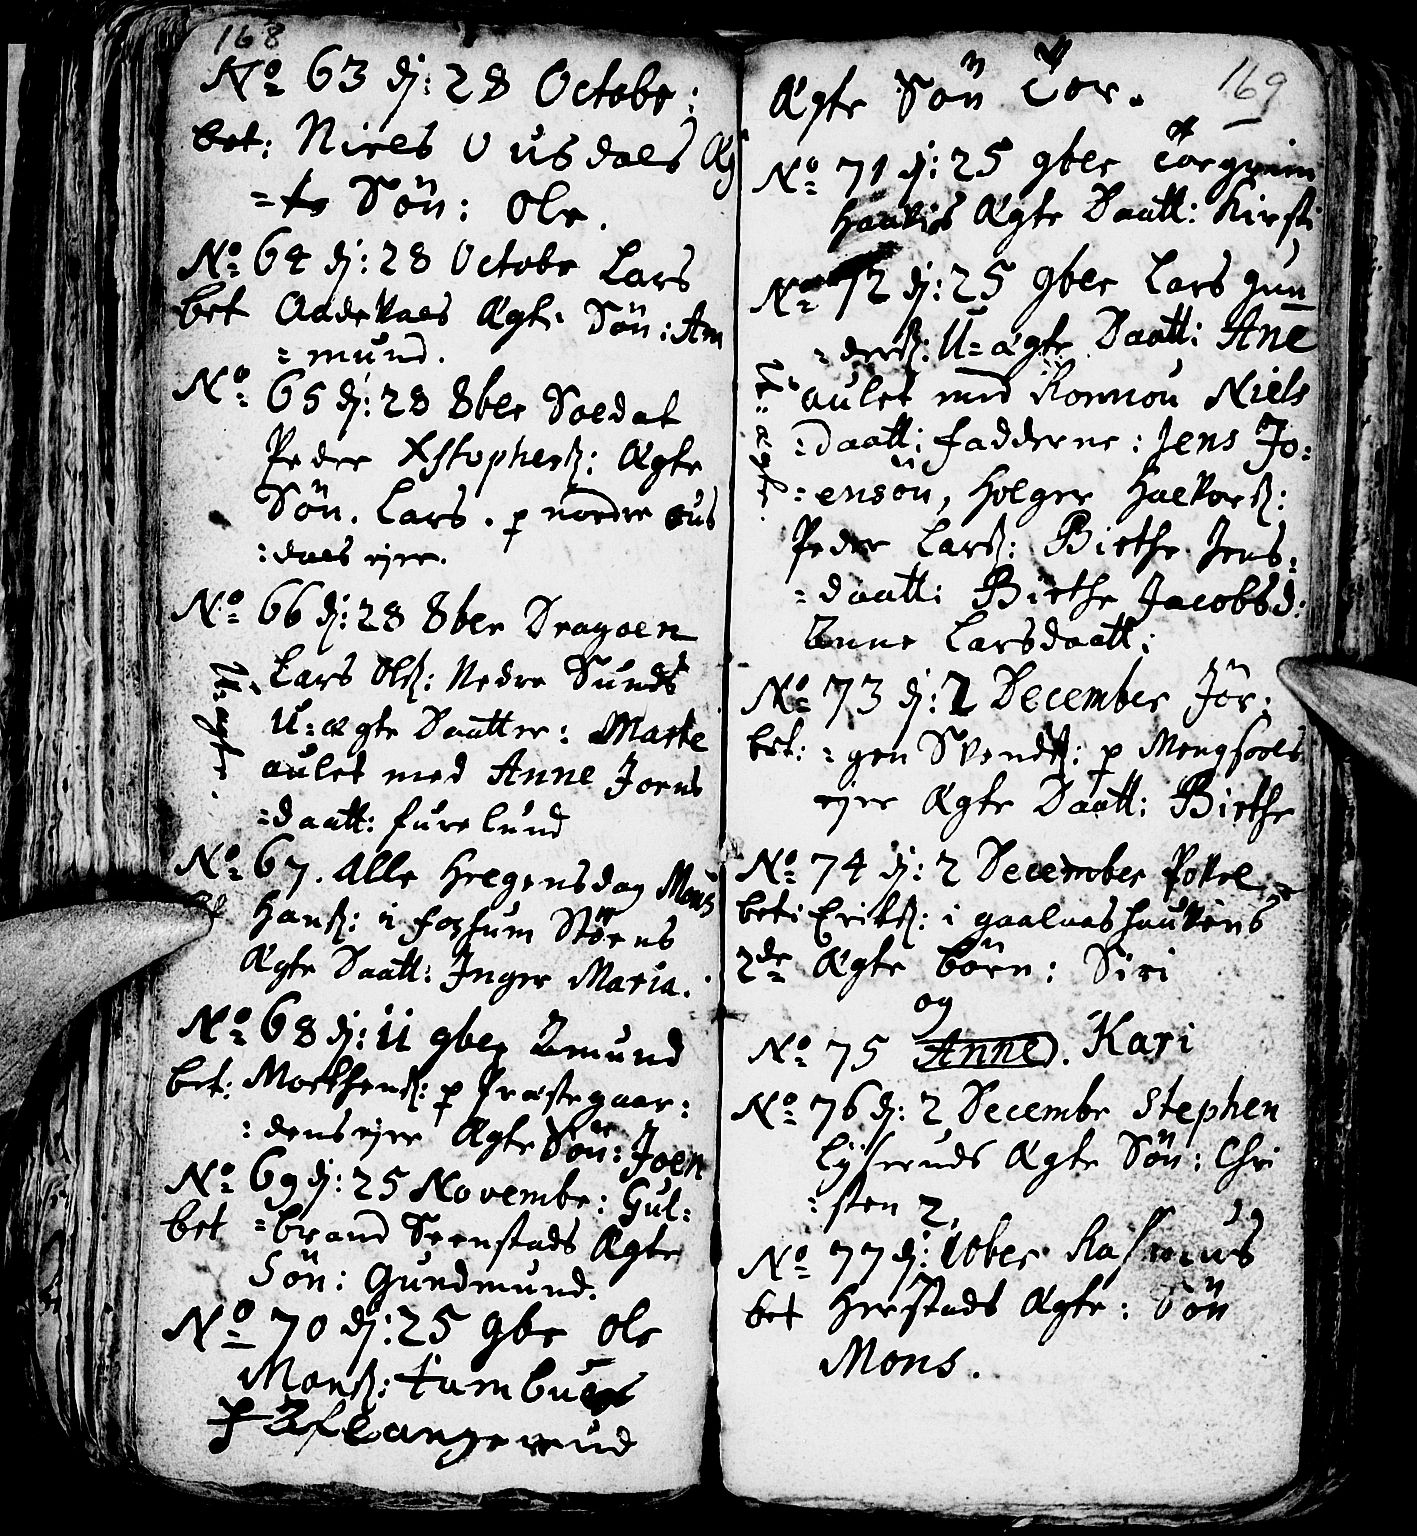 168
No 63 dj: 28 Octobr:
bet: Niels Ousdals Æg
=te Sön: Ole.
No 64 dj: 28 Octobr Lars
bet Aadekaas Ægte Sön: Am
=mund.
No 65 dj: 28 8ber Soldat
Peder Xstophersß: Ægte
Sön. Lars. p nordre ous
:dals ejer.
No 66 dj: 28 8ber Dragoen
Lars Olß: Nedre Sunds
U=ægte Daatter: Marte
aulet med Anne Joens
=daatt: furelund
U=ægte.
No 67. Alle Helgensdag Mons
bet Hanß: i foshum Störens
Ægte Daatt: Inger Maria.
No 68 dj: 11 9ber Amund
bet: Morthenß: p Præstegaar:
:dens ejer Ægte Sön: Joen
No 69 dj: 25 Novembr: Gul:
bet =brand Seenstads Ægte
Sön: Gundmund.
No 70 dj: 25 9br Ole
Monß: tambuurs
p langerud
169
Ægte Sön Tor.
No 71 dj: 25 9ber Torgrim
Haukis Ægte Daatt: Kirsti
No 72 dj: 25 9ber Lars Gun
=derß: U=ægte Daatt: Ane
aulet med Ronnou Niels
:daatt: fadderne: Jens Jo:
:ensön, Holger Halvorß:
Peder Larß: Birthe Jens:
=daatt: Birthe Jacobsd:
Anne Larsdaatt:
U=ægte.
No 73 dj: 2 December Jör:
bet: =gen Svendß: p Mengshols
ejer Ægte Daatt: Birthe
No 74 dj: 2 December Povel
bet: Erikß: i gaalaashaukens
2de Ægte börn: Siri
og
No 75 Anne. Kari
No 76 dj: 2 Decembr Stephen
Lyseruds Ægte Sön: Chri
:sten 2,
No 77 dj: 10ber Rasmus
bet Herstads Ægte: Sön
Mons.